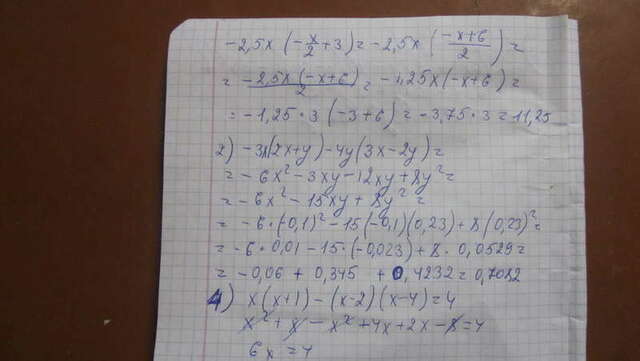 -2,5x (-x/2 + 3) = -2,5x (-x+6/2) =
= -2,5x(-x+6)/2 = -1,25x(-x+6) =
= -1,25 · 3 (-3+6) = -3,75 · 3 = 11,25
2) -3x(2x+y) - 4y(3x-2y) =
= -6x² - 3xy - 12xy + 8y² =
= -6x² - 15xy + 8y² =
= -6·(-0,1)² - 15(-0,1)(0,23) + 8(0,23)² =
= -6 · 0,01 - 15·(-0,023) + 8 · 0,0529 =
= -0,06 + 0,345 + 0,4232 = 0,7082
4) x(x+1) - (x-2)(x-4) = 4
x² + x - x² + 4x + 2x - 8 = 4
6x = 4